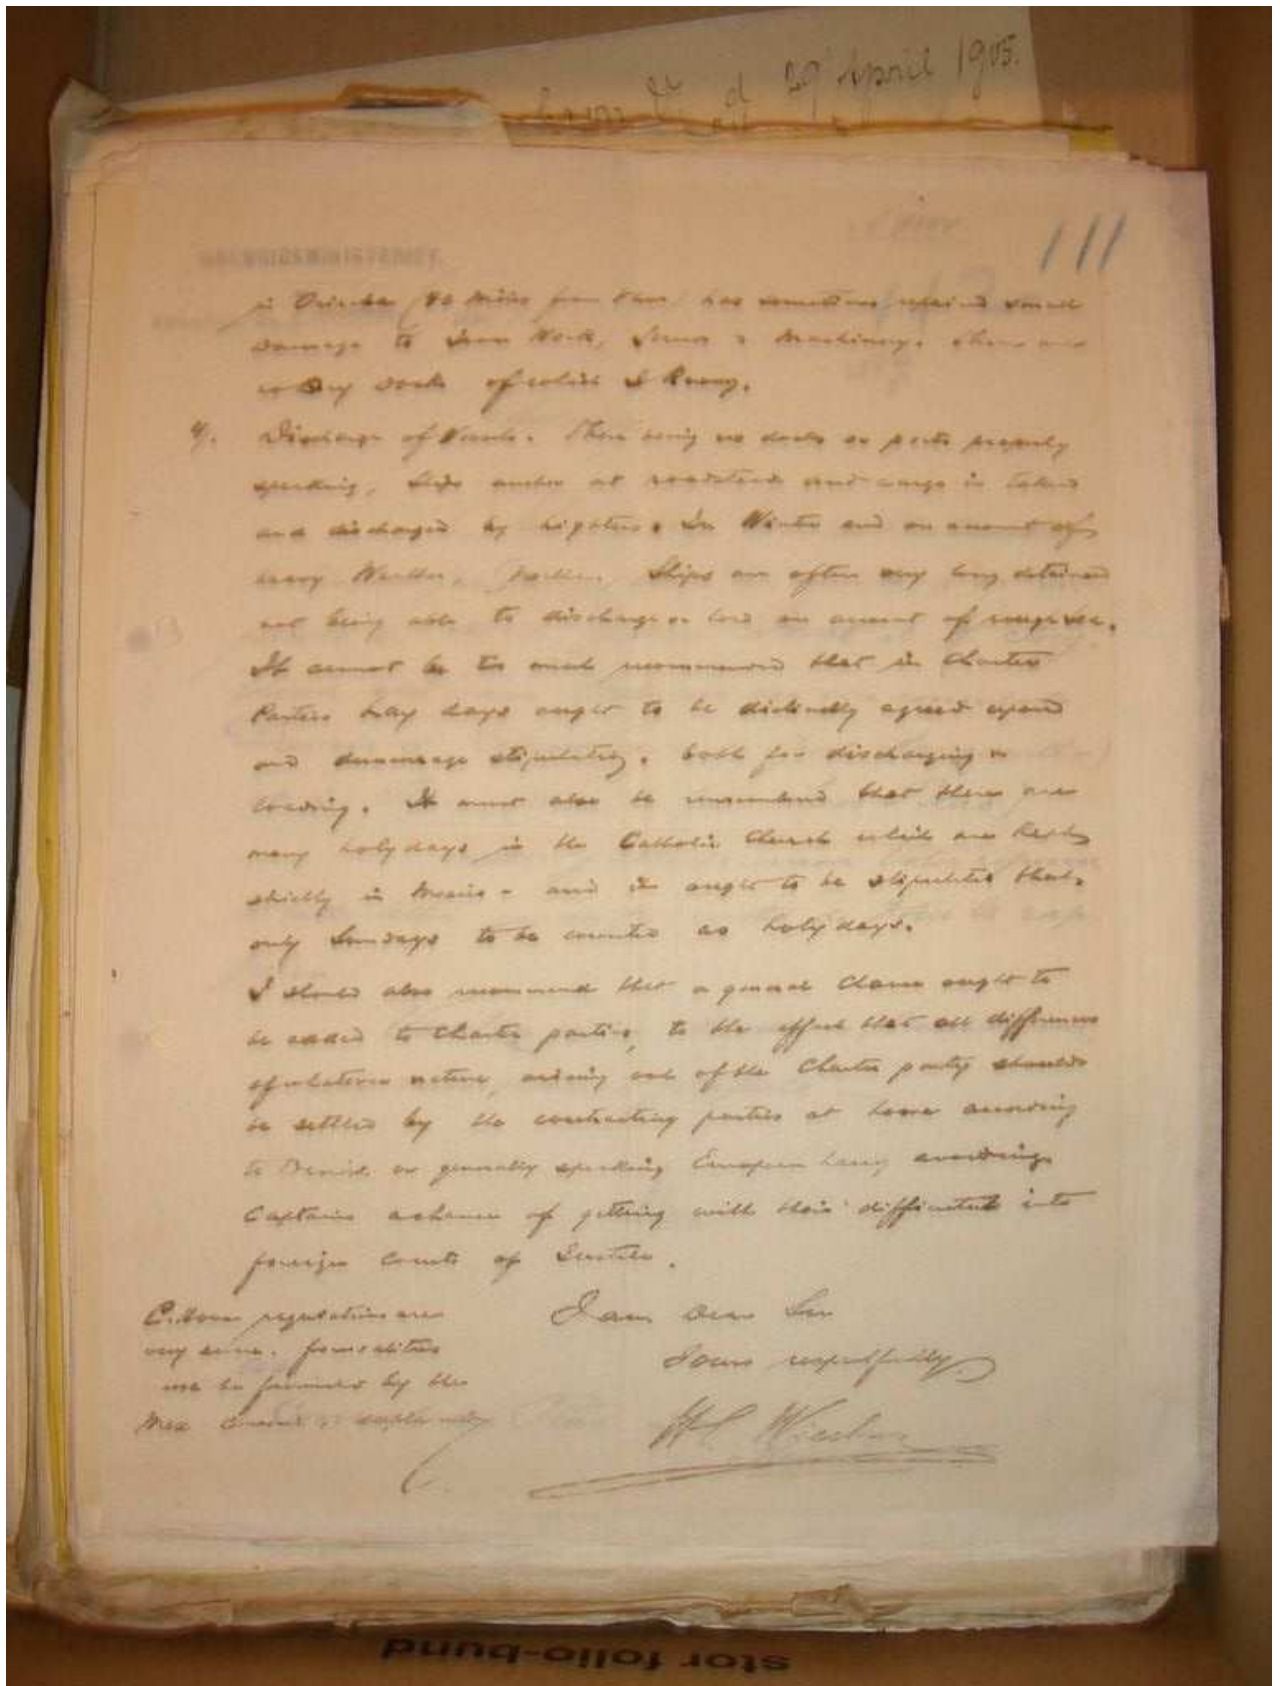 29 April 1905.
111
in Orizaba (82 miles from here) has sometimes repaired small
damage to Iron Work, Screws & Machinery. There are
no Dry Docks of which I know.
4/. Discharge of Vessels. There being no docks or ports properly
speaking, Ships anchor at roadstead and cargo is taken
and discharged by lighters. In Winter and on account of
heavy Weather, Ships are often very long detained
not being able to discharge or load on account of rough sea.
It cannot be too much recommended that in Charter
Parties Lay days ought to be distinctly agreed upon
and demurrage stipulated, both for discharging or
loading. It must also be remembered that there are
many holydays in the Catholic Church which are kept
strictly in Mexico - and it ought to be stipulated that
only Sundays to be counted as holydays.
I should also recommend that a general Clause ought to
be added to Charter parties, to the effect that all differences
of whatever nature, arising out of the Charter party should
be settled by the contracting parties at home according
to Danish or generally speaking European Laws avoiding
Captains a chance of getting with their difficulties into
foreign Courts of Justice.
I am Dear Sir
Yours respectfully
regulations are
very formalities
by the
Mex
stor folio-bund